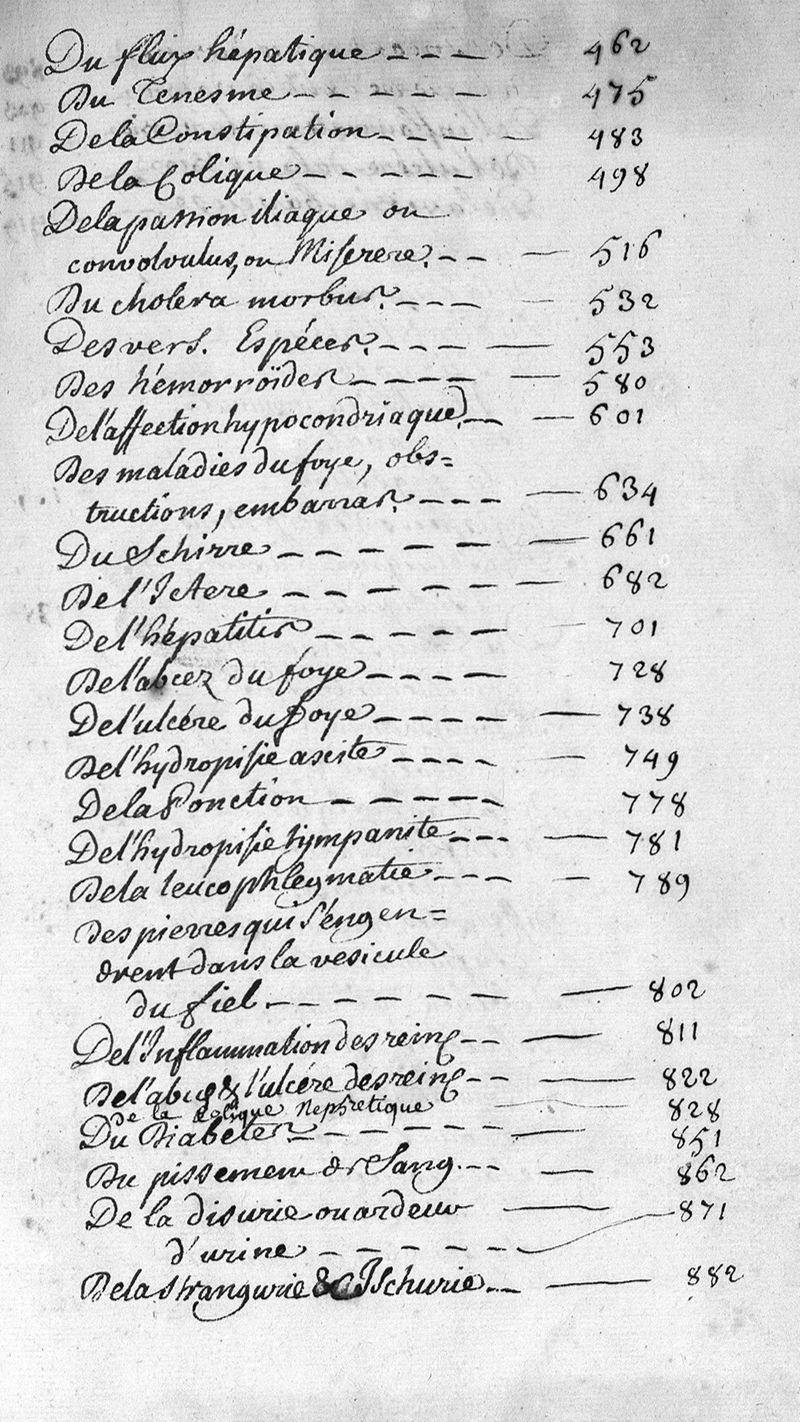 Du flux hépatique - - - 462
Du Tenesme - - - - - 475
De la Constipation - - - - 483
De la Colique - - - - - 498
De la passion iliaque ou
convolvulus, ou Miserere. - - - 516
Du cholera morbus. - - - - 532
Des vers. Espéces. - - - - 553
Des hémorroïdes - - - - - 580
De l'affection hypocondriaque - - 601
Des maladies du foye, obs=
tructions, embarras. - - - - 634
Du Schirre - - - - - - 661
De l'Ictere - - - - - - 682
De l'hépatitis - - - - - 701
De l'abcez du foye - - - - 728
De l'ulcére du foye - - - - - 738
De l'hydropisie ascite - - - - - 749
De la Ponction - - - - - 778
De l'hydropisie tympanite - - - - 781
De la leucophlegmatie - - - - 789
Des pierres qui s'engen=
drent dans la vesicule
du fiel. - - - - - - 802
De l'Inflammation des reins - - - 811
De l'abcez & l'ulcére des reins - - - 822
De la Colique Nephretique 828
Du Diabetes. - - - - - - 851
Du pissement de Sang. - - - 862
De la disurie ou ardeur 871
d'urine - - - - -
De la strangurie & Ischurie - - - 882